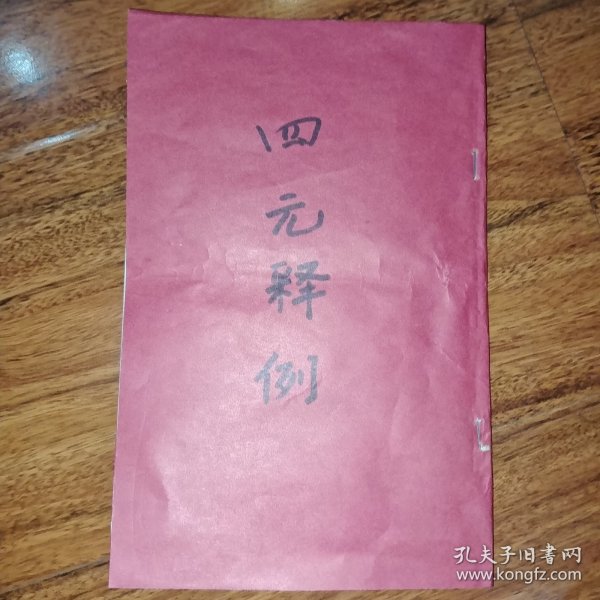 四元释例
孔夫子旧書网
www.kongfz.com